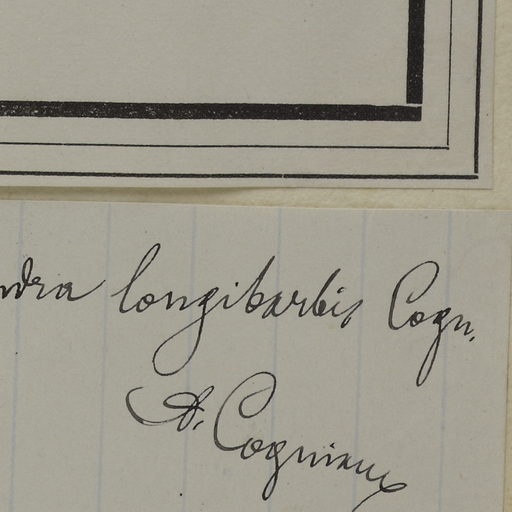 ndra longibarbis Cogn.
A. Cogniaux